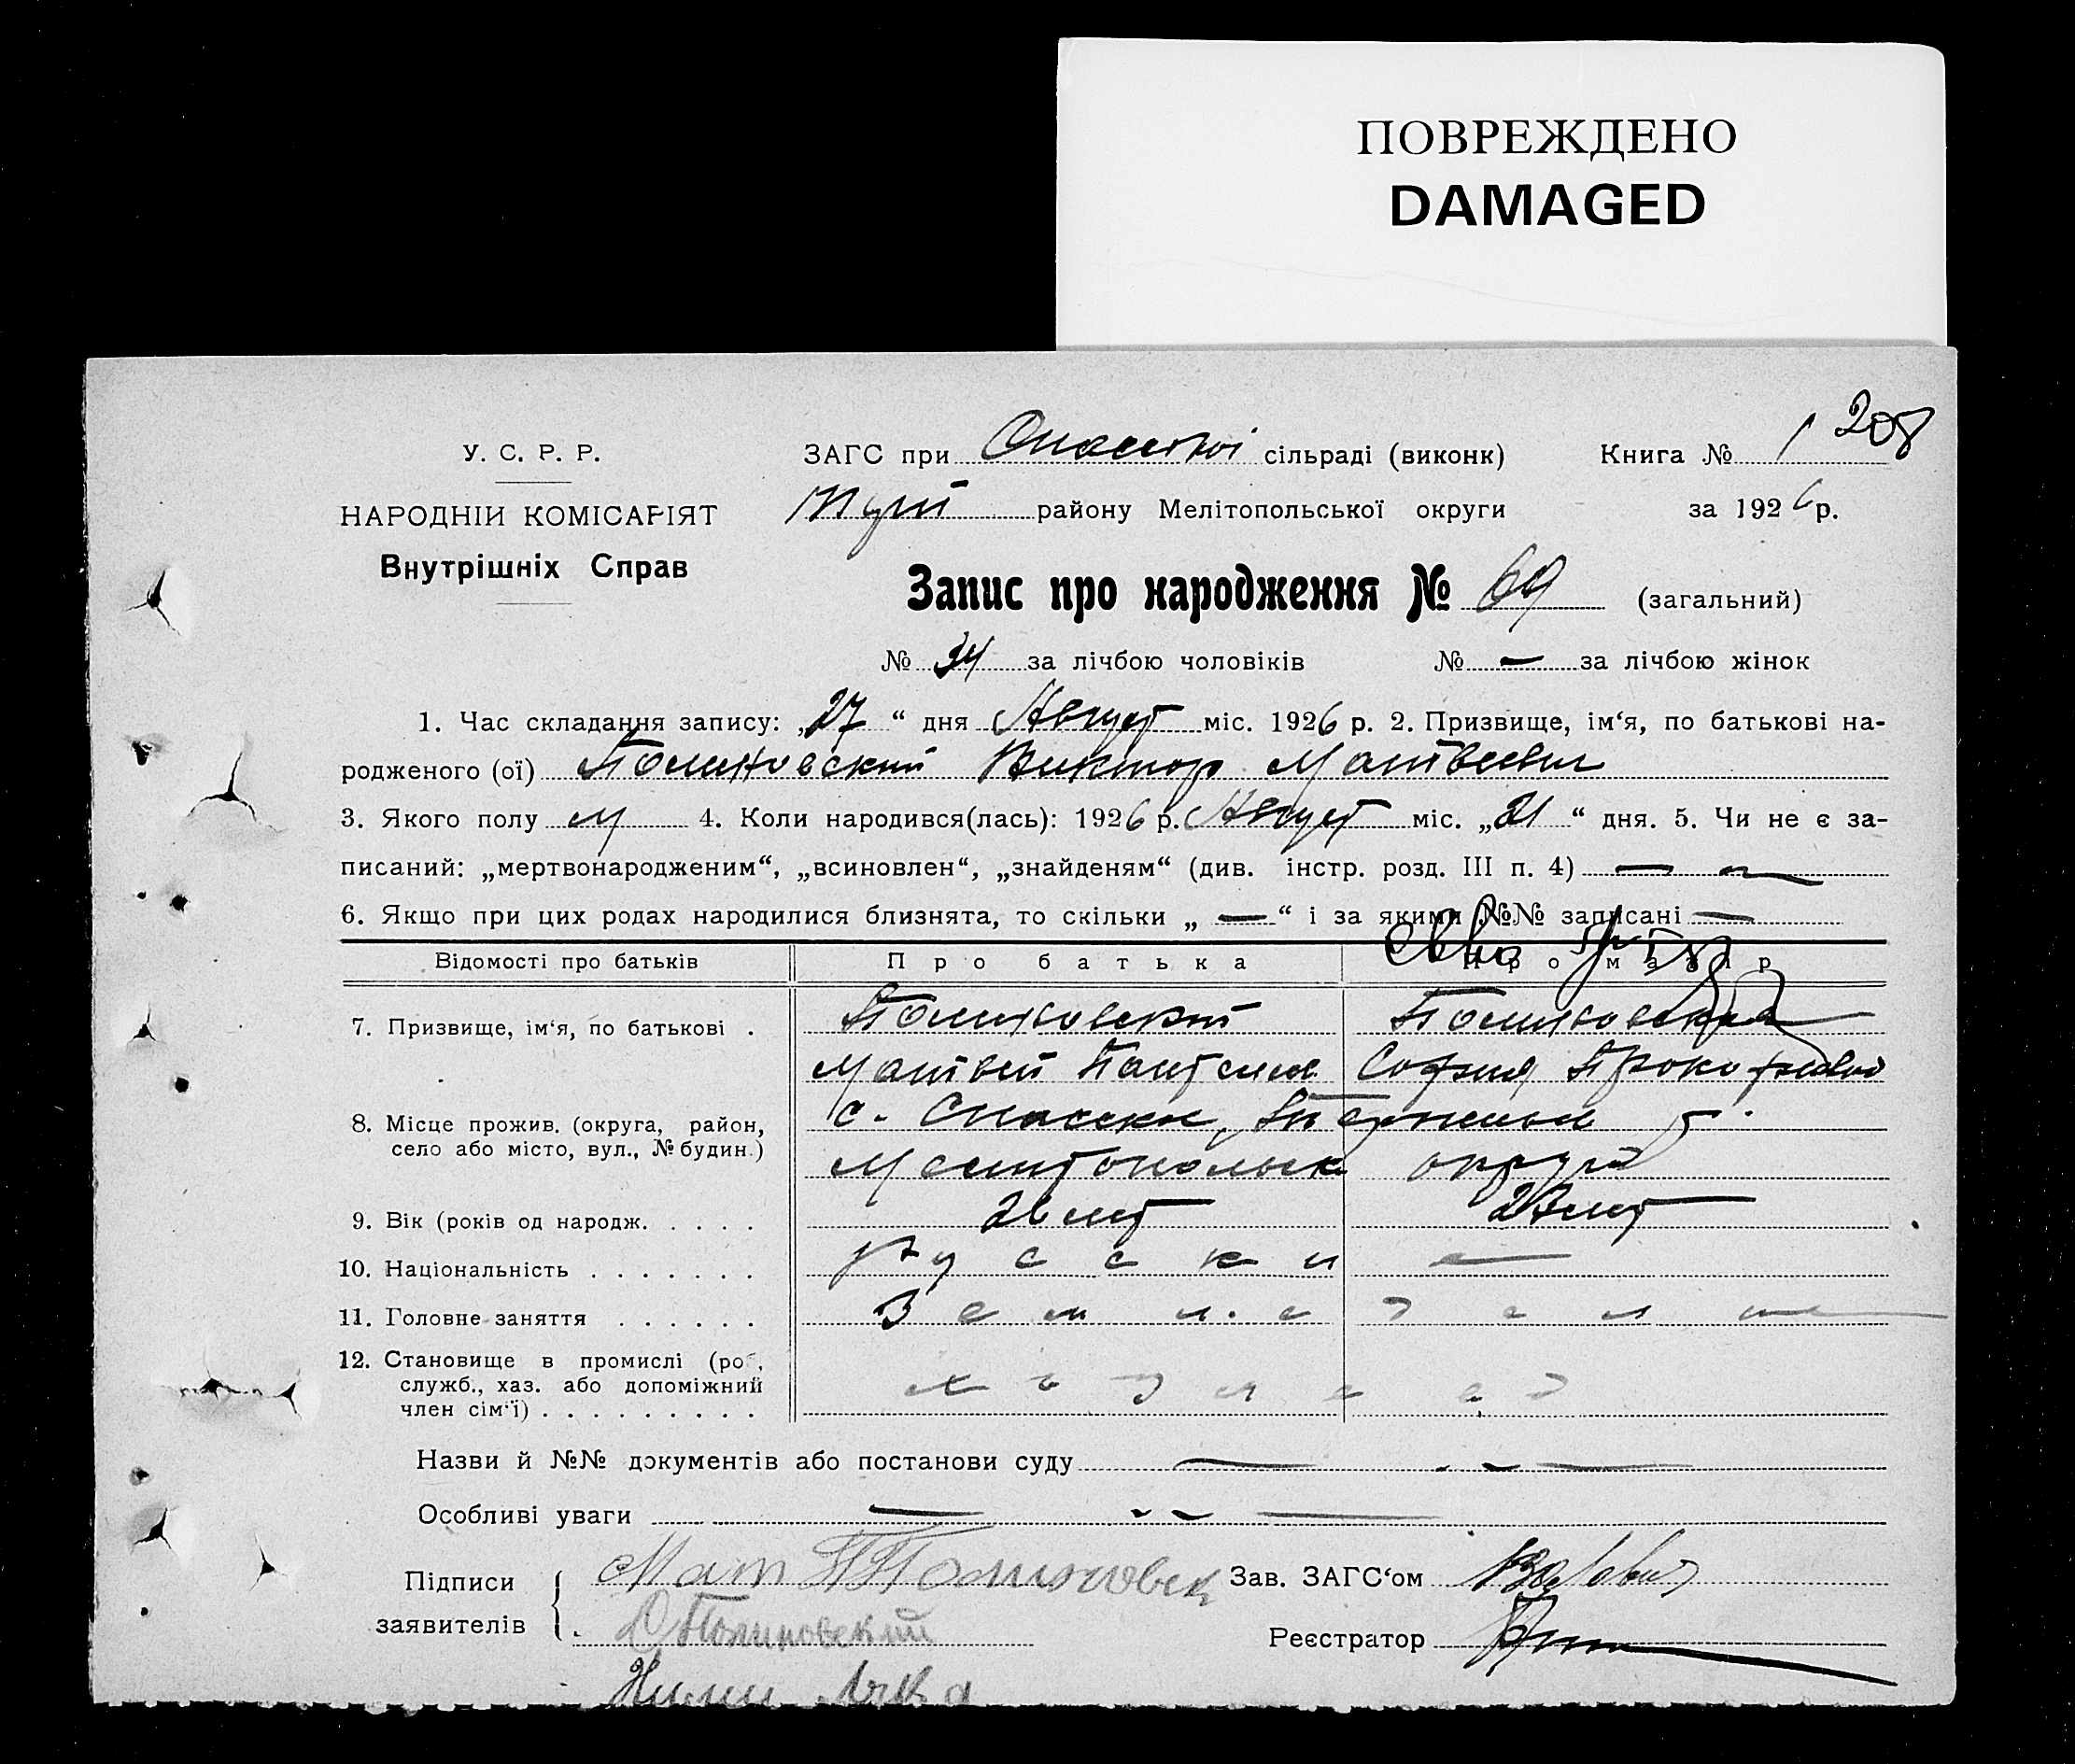 ПОВРЕЖДЕНО
DAMAGED
208
У. С. Р. Р.
ЗАГС при сільраді (виконк) Книга № 1
НАРОДНІЙ КОМІСАРІЯТ
району Мелітопольської округи за 1926 р.
Внутрішніх Справ
Запис про народження № 69 (загальний)
№ 34 за лічбою чоловіків № — за лічбою жінок
1. Час складання запису: „27“ дня Август міс. 1926 р. 2. Призвище, ім‘я, по батькові на-
родженого (ої) Полиновский Виктор Матвеевич
3. Якого полу м 4. Коли народився(лась): 1926 р. Август міс. „21“ дня. 5. Чи не є за-
писаний: „мертвонародженим“, „всиновлен“, „знайденям“ (див. інстр. розд. III п. 4) —
6. Якщо при цих родах народилися близнята, то скільки „—“ і за якими №№ записані —
Відомості про батьків Про батька Про матір
7. Призвище, ім‘я, по батькові . Полиновский Полиновская
Матвей София
8. Місце прожив. (округа, район,
село або місто, вул., № будин.)
с. Спасское,
округа
9. Вік (років од народж. . . . . 26 лет 23 лет
10. Національність . . . . . . . русские
11. Головне заняття . . . . . . Земледелие
12. Становище в промислі (роб,
служб., хаз. або допоміжний
член сім‘ї) . . . . . . . . .
Назви й №№ документів або постанови суду —
Особливі уваги —
Підписи
заявителів
Мат Полиновск
Полиновский
Зав. ЗАГС‘ом
Реєстратор